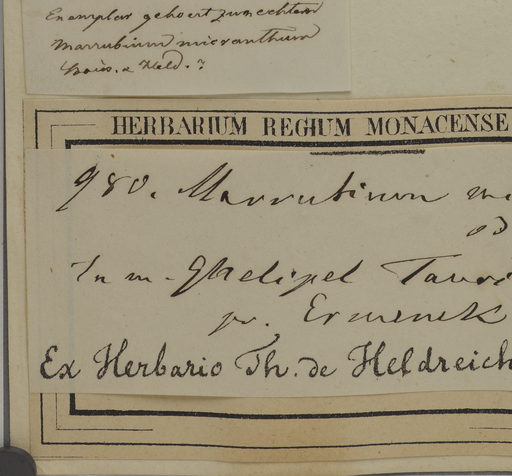 Exemplar gehoert zum echten
Marrubium micranthum
Boiss. & Held.?
HERBARIUM REGIUM MONACENSE
980. Marrubium
In m. Ghelipel Tauri
pr. Ermenek
Ex Herbario Th. de Heldreich